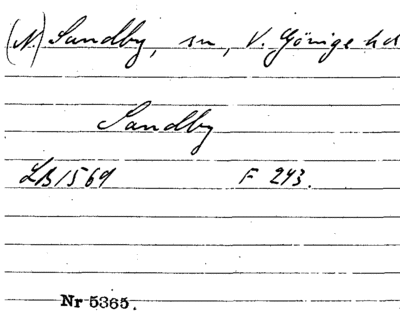 (N.) Sandby, sn, V. Göinge hd
Sandby
LB 1569 F 243.
Nr 5365.